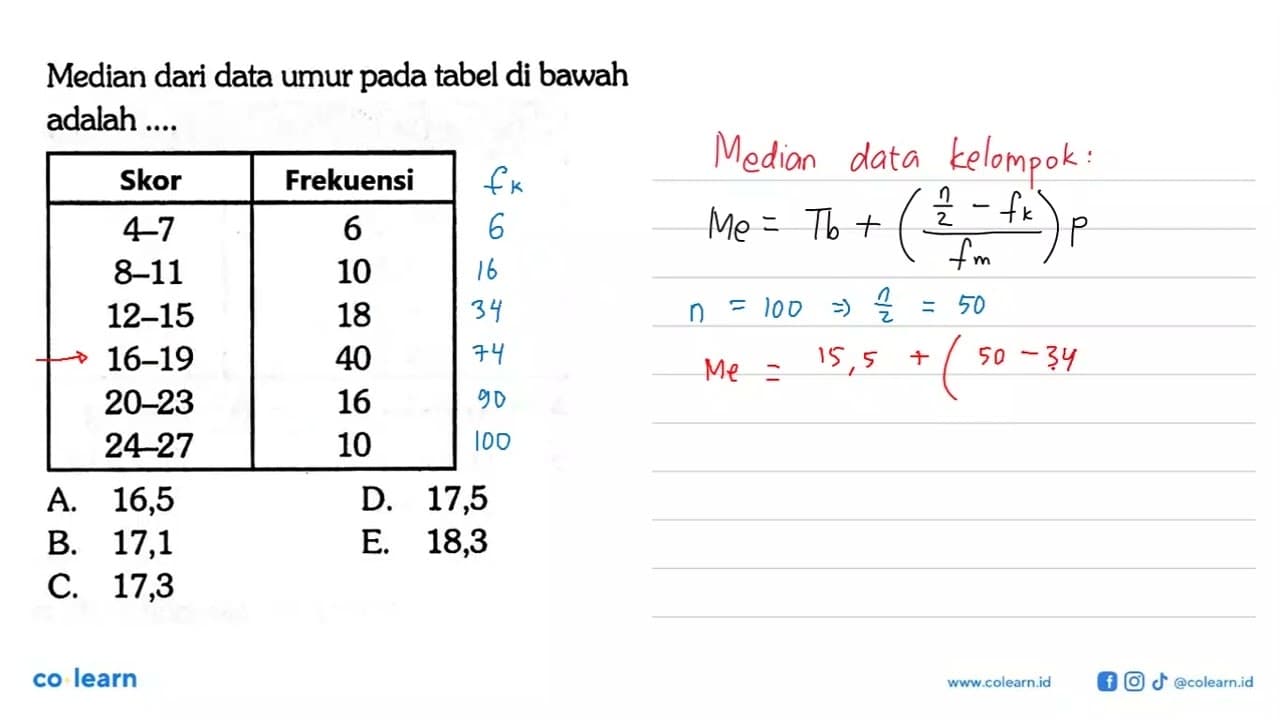 Median dari data umur pada tabel di bawah
adalah ....
Skor Frekuensi fk
4–7 6 6
8–11 10 16
12–15 18 34
16–19 40 74
20–23 16 90
24–27 10 100
A. 16,5 D. 17,5
B. 17,1 E. 18,3
C. 17,3
Median data kelompok:
Me = Tb + ( n/2 - fk / fm ) p
n = 100 => n/2 = 50
Me = 15,5 + ( 50 - 34
co learn
www.colearn.id @colearn.id